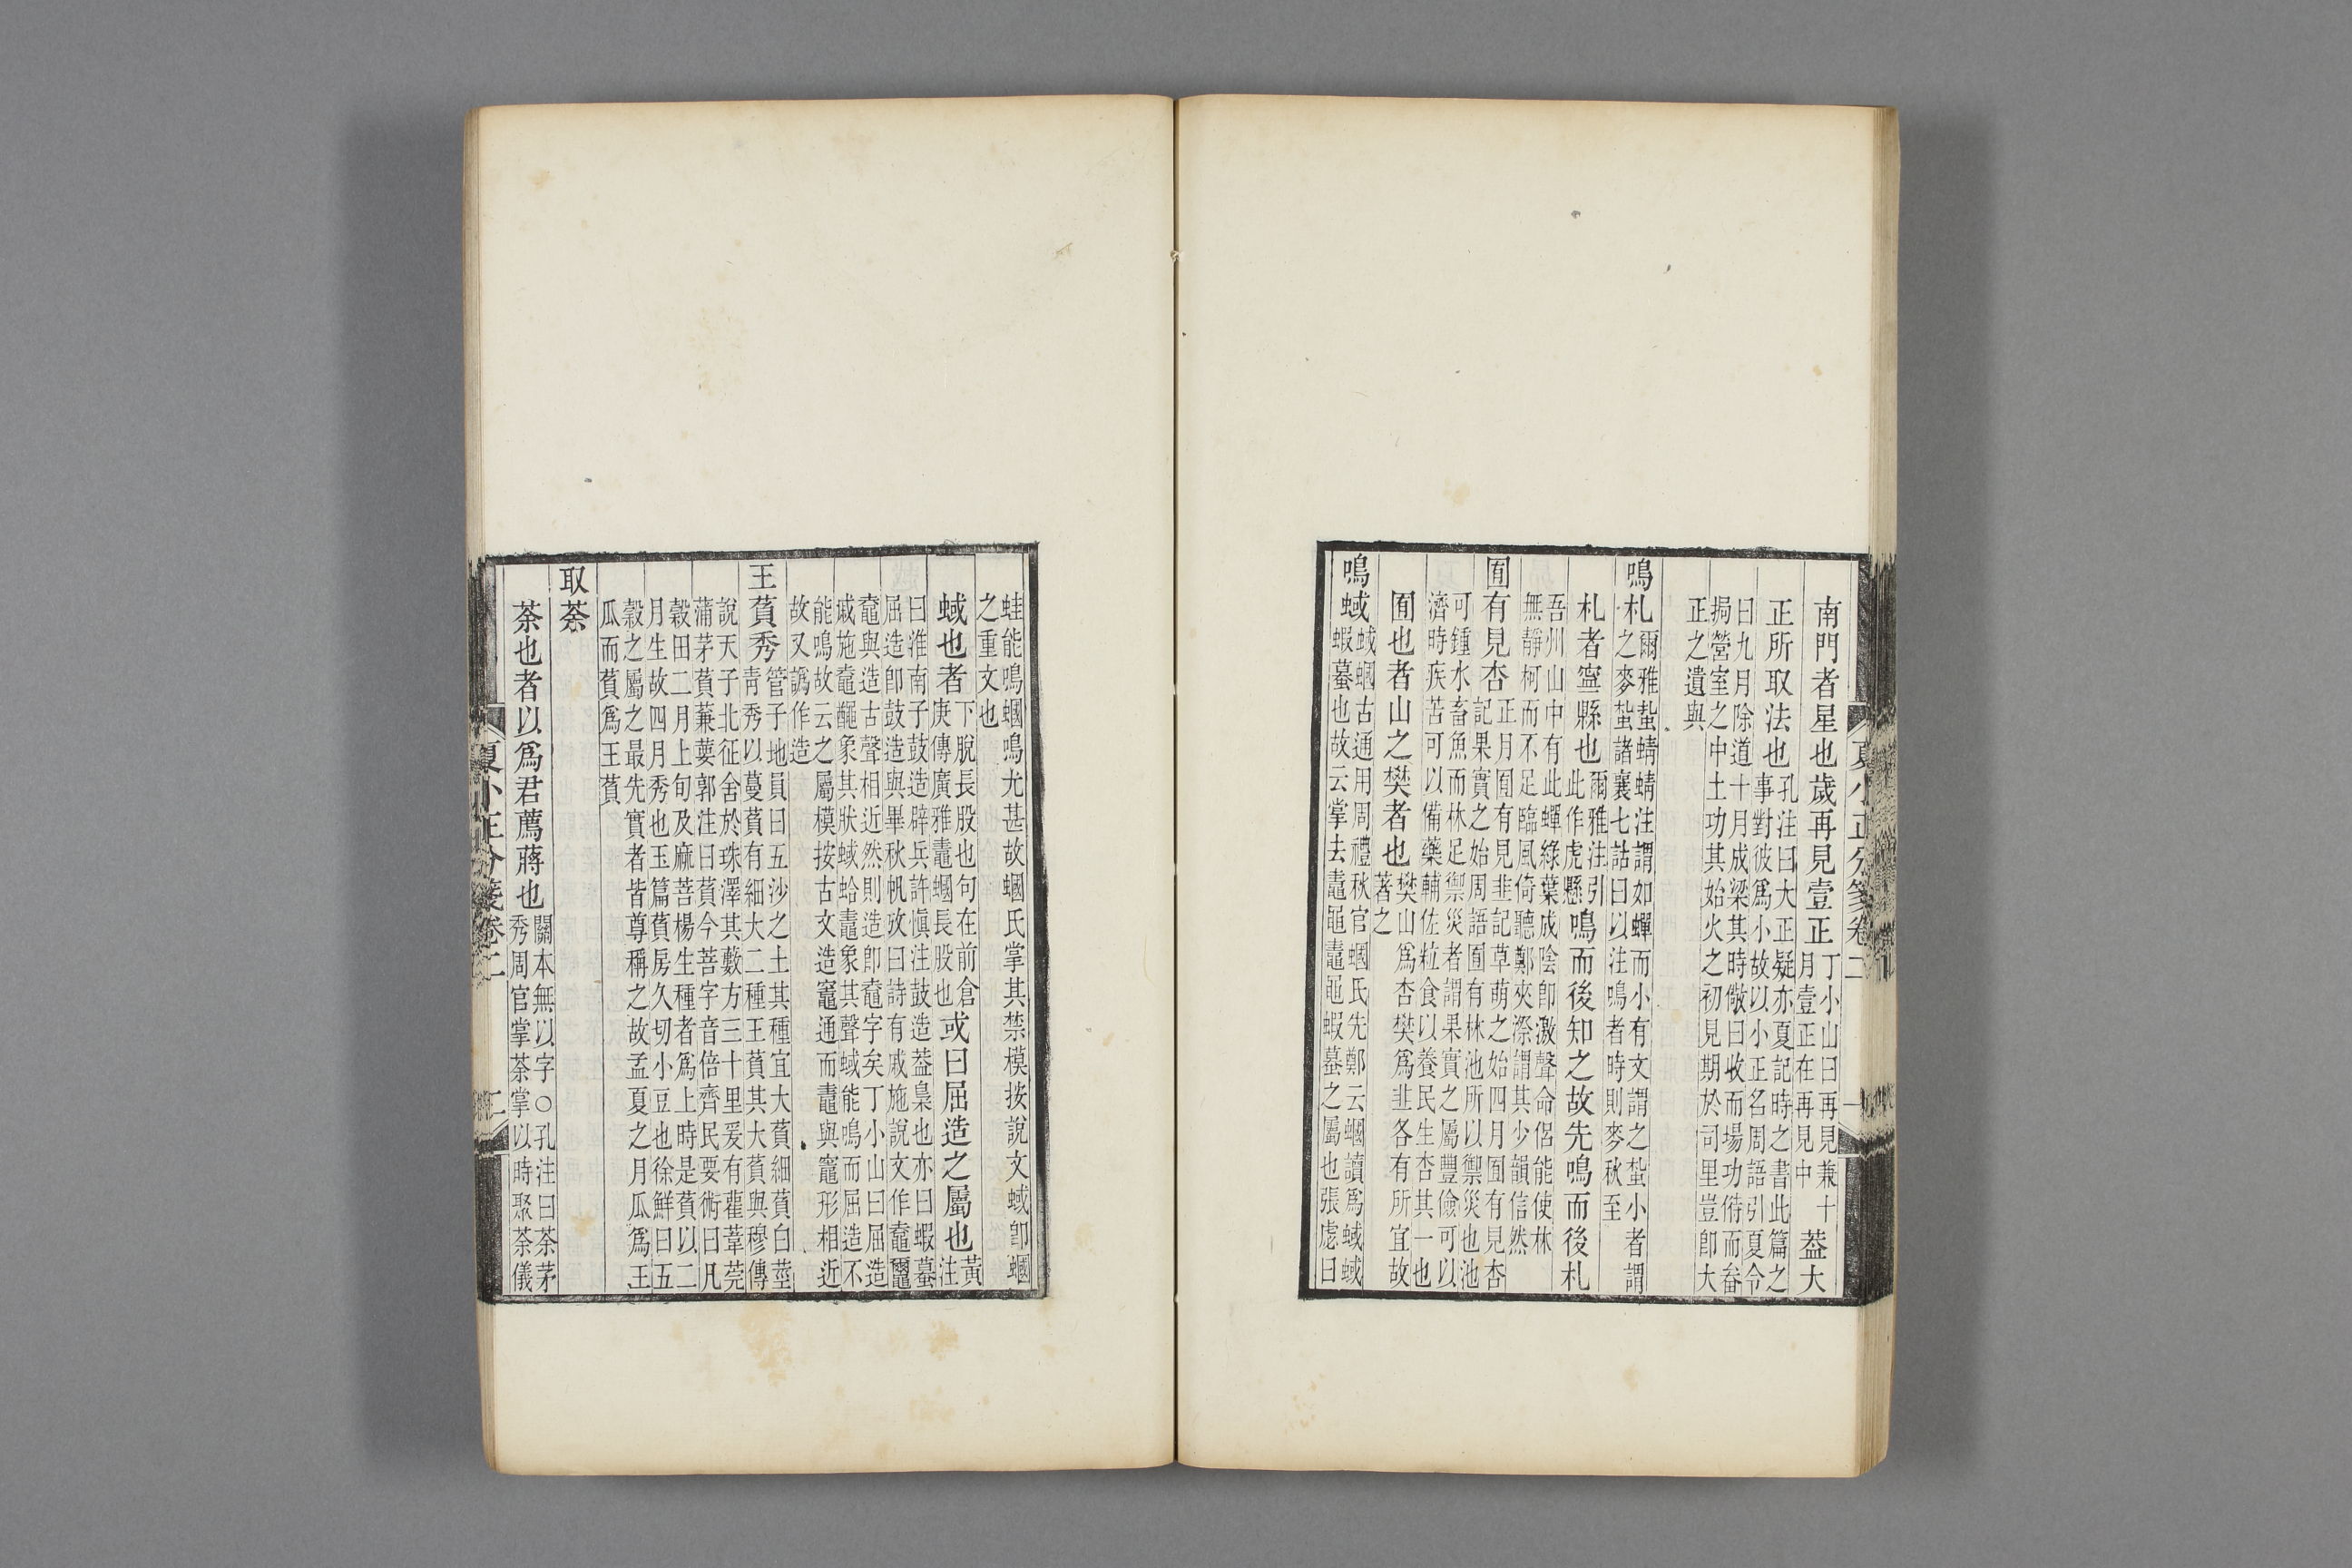 南門者星也歲再見壹正丁小山曰再見兼十
月壹正在再見中葢大
正所取法也孔注曰大正疑亦夏記時之書此篇之
事對彼爲小故以小正名周語引夏令
曰九月除道十月成梁其時儆曰收而場功偫而畚
挶營室之中土功其始火之初見期於司里豈卽大
正之遺與
鳴札爾雅蚻蜻蜻注謂如蟬而小有文謂之蚻小者謂
之麥蚻諸襄七詁曰以注鳴者時則麥秋至
札者寧縣也爾雅注引
此作虎懸鳴而後知之故先鳴而後札
吾州山中有此蟬綠葉成陰卽激聲命侶能使林
無靜柯而不足臨風倚聽鄭夾漈謂其少韻信然
囿有見杏正月囿有見韭記草萌之始四月囿有見杏
記果實之始周語囿有林池所以禦災也池
可鍾水畜魚而林足禦災者謂果實之屬豐儉可以
濟時疾苦可以備藥輔佐粒食以養民生杏其一也
囿也者山之樊者也樊山爲杏樊爲韭各有所宜故
著之
鳴蜮蜮蟈古通用周禮秋官蟈氏先鄭云蟈讀爲蜮蜮
蝦蟇也故云掌去鼃黽鼃黽蝦蟇之屬也張慮曰
蛙能鳴蟈鳴尤甚故蟈氏掌其禁模按說文蜮卽蟈
之重文也
蜮也者下脫長股也句在前倉
庚傳廣雅鼃蟈長股也或曰屈造之屬也黃
注
曰淮南子鼓造辟兵許愼注鼓造葢梟也亦曰蝦蟇
屈造卽鼓造與畢秋帆攷曰詩有戚施說文作𪓰𪓿
𪓰與造古聲相近然則造卽𪓰字矣丁小山曰屈造
戚施𪓰䵶象其狀蜮蛤鼃象其聲蜮能鳴而屈造不
能鳴故云之屬模按古文造竈通而鼃與竈形相近
故又譌作造
王萯秀管子地員曰五沙之土其種宜大萯細萯白莖
靑秀以蔓萯有細大二種王萯其大萯與穆傳
說天子北征舍於珠澤其藪方三十里爰有雚葦莞
蒲茅萯蒹葽郭注曰萯今菩字音倍齊民要術曰凡
穀田二月上旬及麻菩楊生種者爲上時是萯以二
月生故四月秀也玉篇萯房久切小豆也徐鮮曰五
穀之屬之最先實者皆尊稱之故孟夏之月瓜爲王
瓜而萯爲王萯
取荼
荼也者以爲君薦蔣也關本無以字○孔注曰荼茅
秀周官掌荼掌以時聚荼儀
夏小正分箋卷二
一
夏小正分箋卷二
二